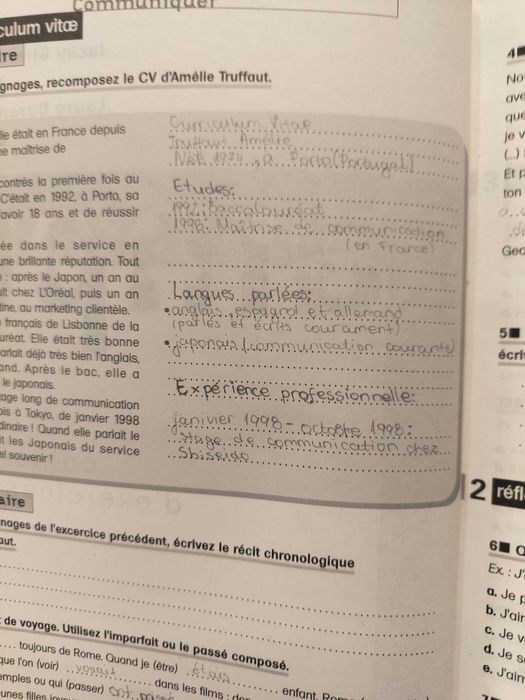 Communiquer
culum vitæ
ire
gnages, recomposez le CV d'Amélie Truffaut.
lle était en France depuis
ne maîtrise de
contrés la première fois au
C'était en 1992, à Porto, sa
avoir 18 ans et de réussir
ée dans le service en
une brillante réputation. Tout
: après le Japon, un an au
it chez L'Oréal, puis un an
tine, au marketing clientèle.
français de Lisbonne de la
uréat. Elle était très bonne
arlait déjà très bien l'anglais,
and. Après le bac, elle a
le japonais.
tage long de communication
is à Tokyo, de janvier 1998
dinaire ! Quand elle parlait le
it les Japonais du service
el souvenir !
Curriculum Vitae
Truffaut Amélie
Née 1974, à Porto (Portugal)
Etudes:
1992: Baccalauréat
1996: Maîtrise de communication
(en France)
Langues parlées:
• anglais, espagnol et allemand
(parlés et écrits courament)
• japonais (communication courante)
Expérience professionnelle:
janivier 1998 - octobre 1998:
stage de communication chez
Shiseido
aire
nages de l'excercice précédent, écrivez le récit chronologique
aut.
de voyage. Utilisez l'imparfait ou le passé composé.
toujours de Rome. Quand je (être) étais
que l'on (voir) voyait dans les films : des enfant. Rom
emples ou qui (passer) ont
unes filles
4
No
ave
que
je v
(...)
Et p
ton
Geo
5
écri
2 réfl
6 Q
Ex. : J'
a. Je p
b. J'air
c. Je v
d. Je s
e. J'ain